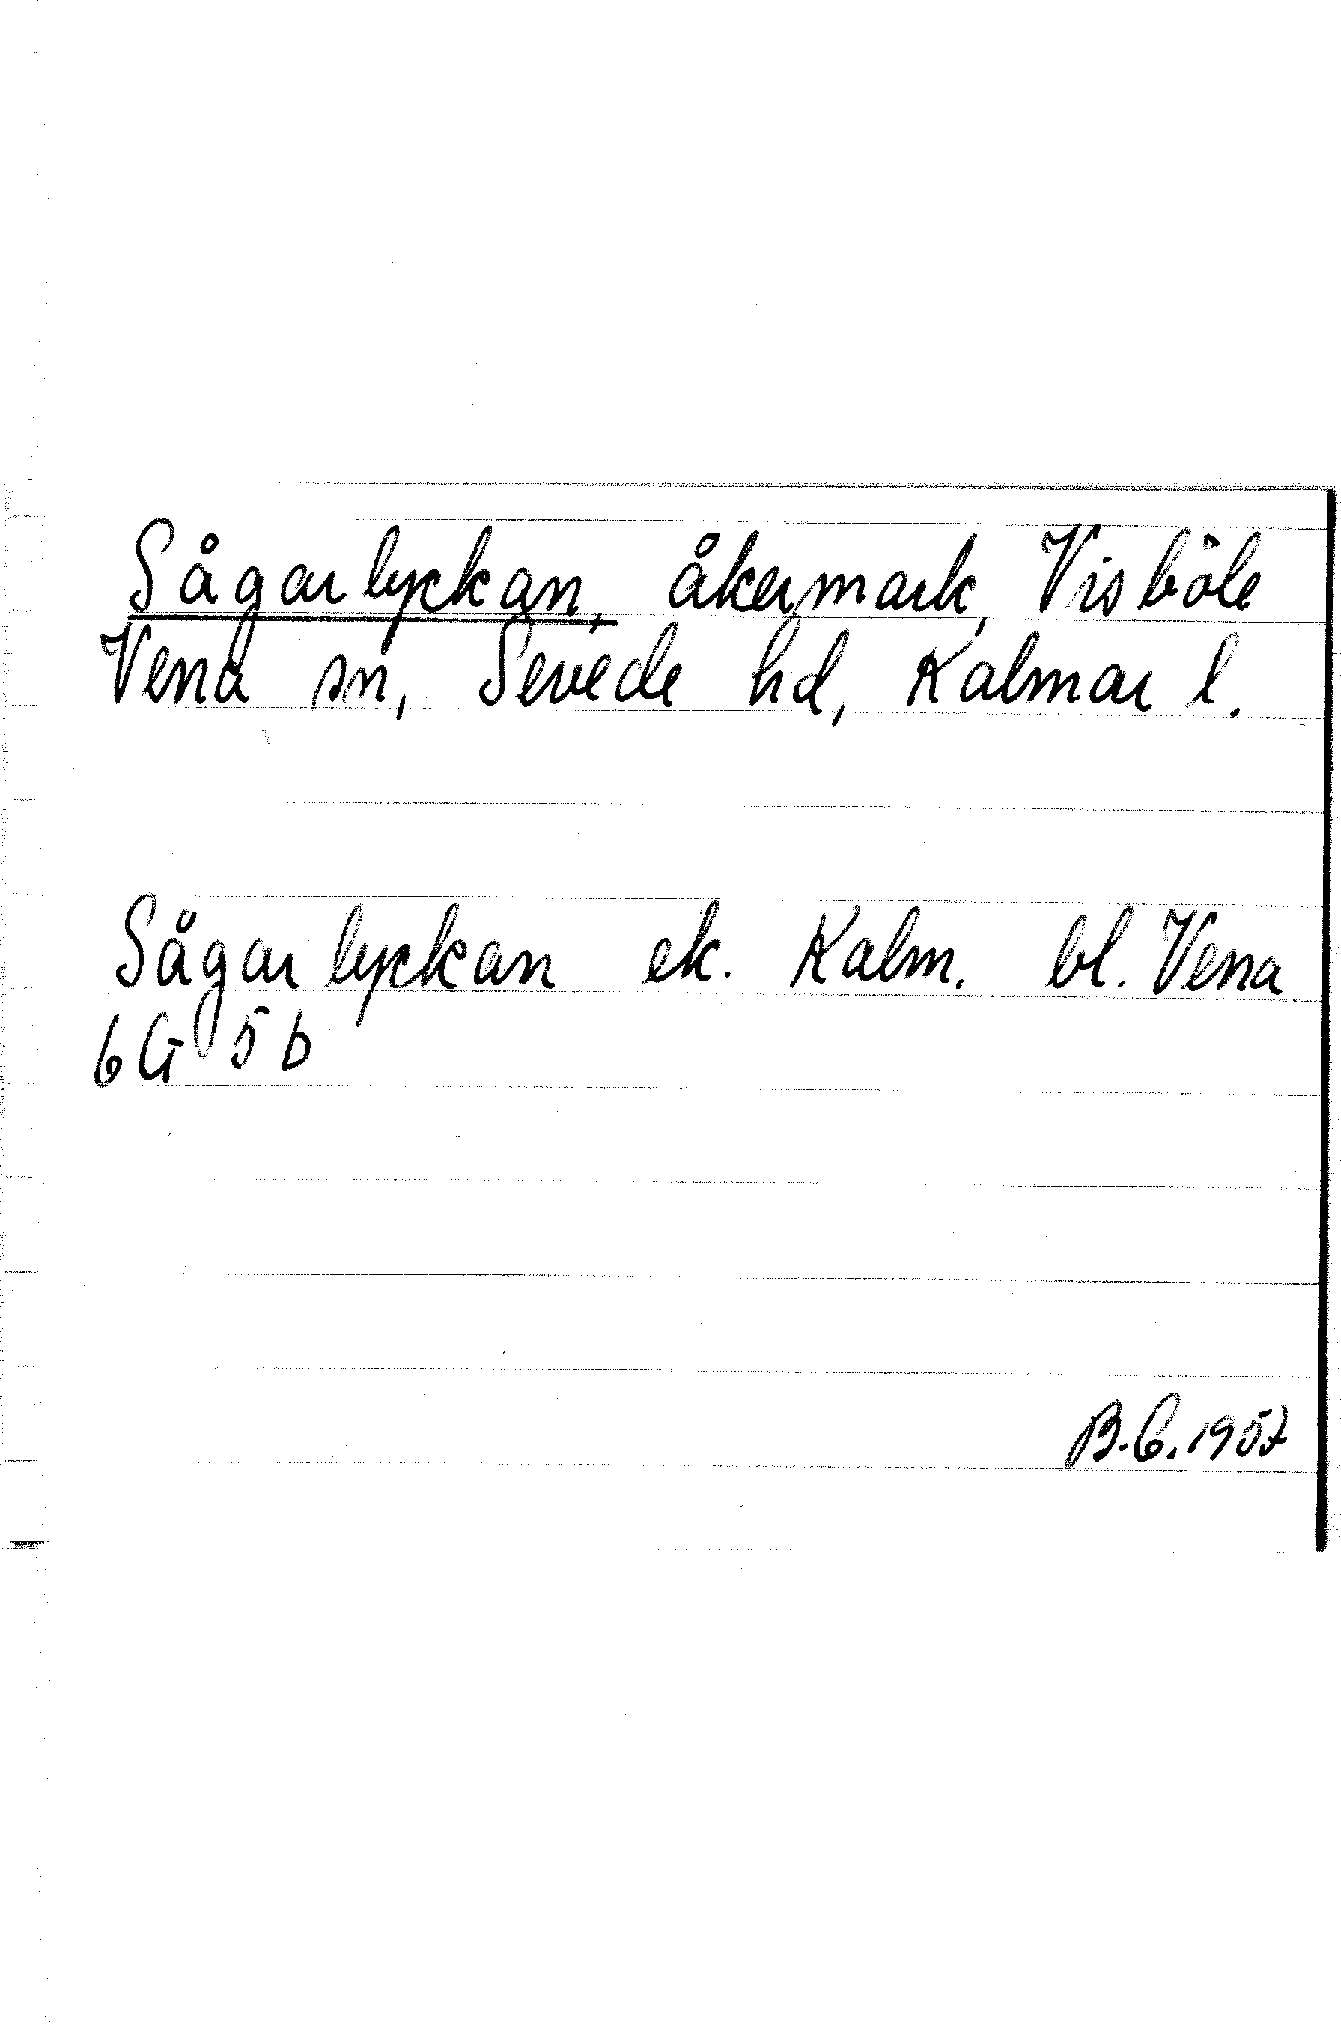 Sågarlyckan, åkermark, Visböle
Vena sn, Sevede hd, Kalmar l.
Sågarlyckan ek. Kalm. bl. Vena
6 G 5 b
B.C. 1957